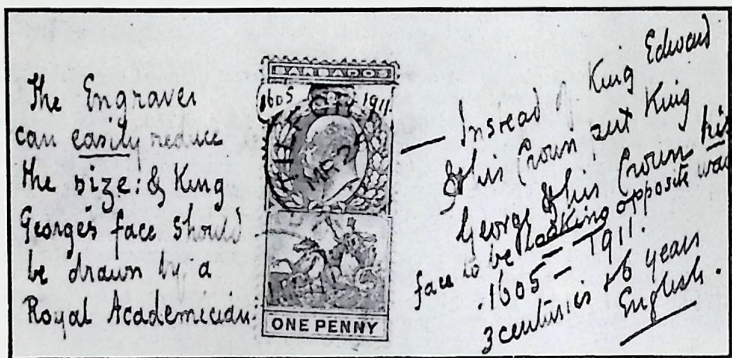 The Engraver
can easily reduce
the size: & King
George's face should
be drawn by a
Royal Academician:
BARBADOS
1605 1911
ONE PENNY
— Instead of King Edward
& his Crown put King
George & his Crown his
face to be looking opposite way
.1605 – 1911.
3 centuries & 6 years
English.